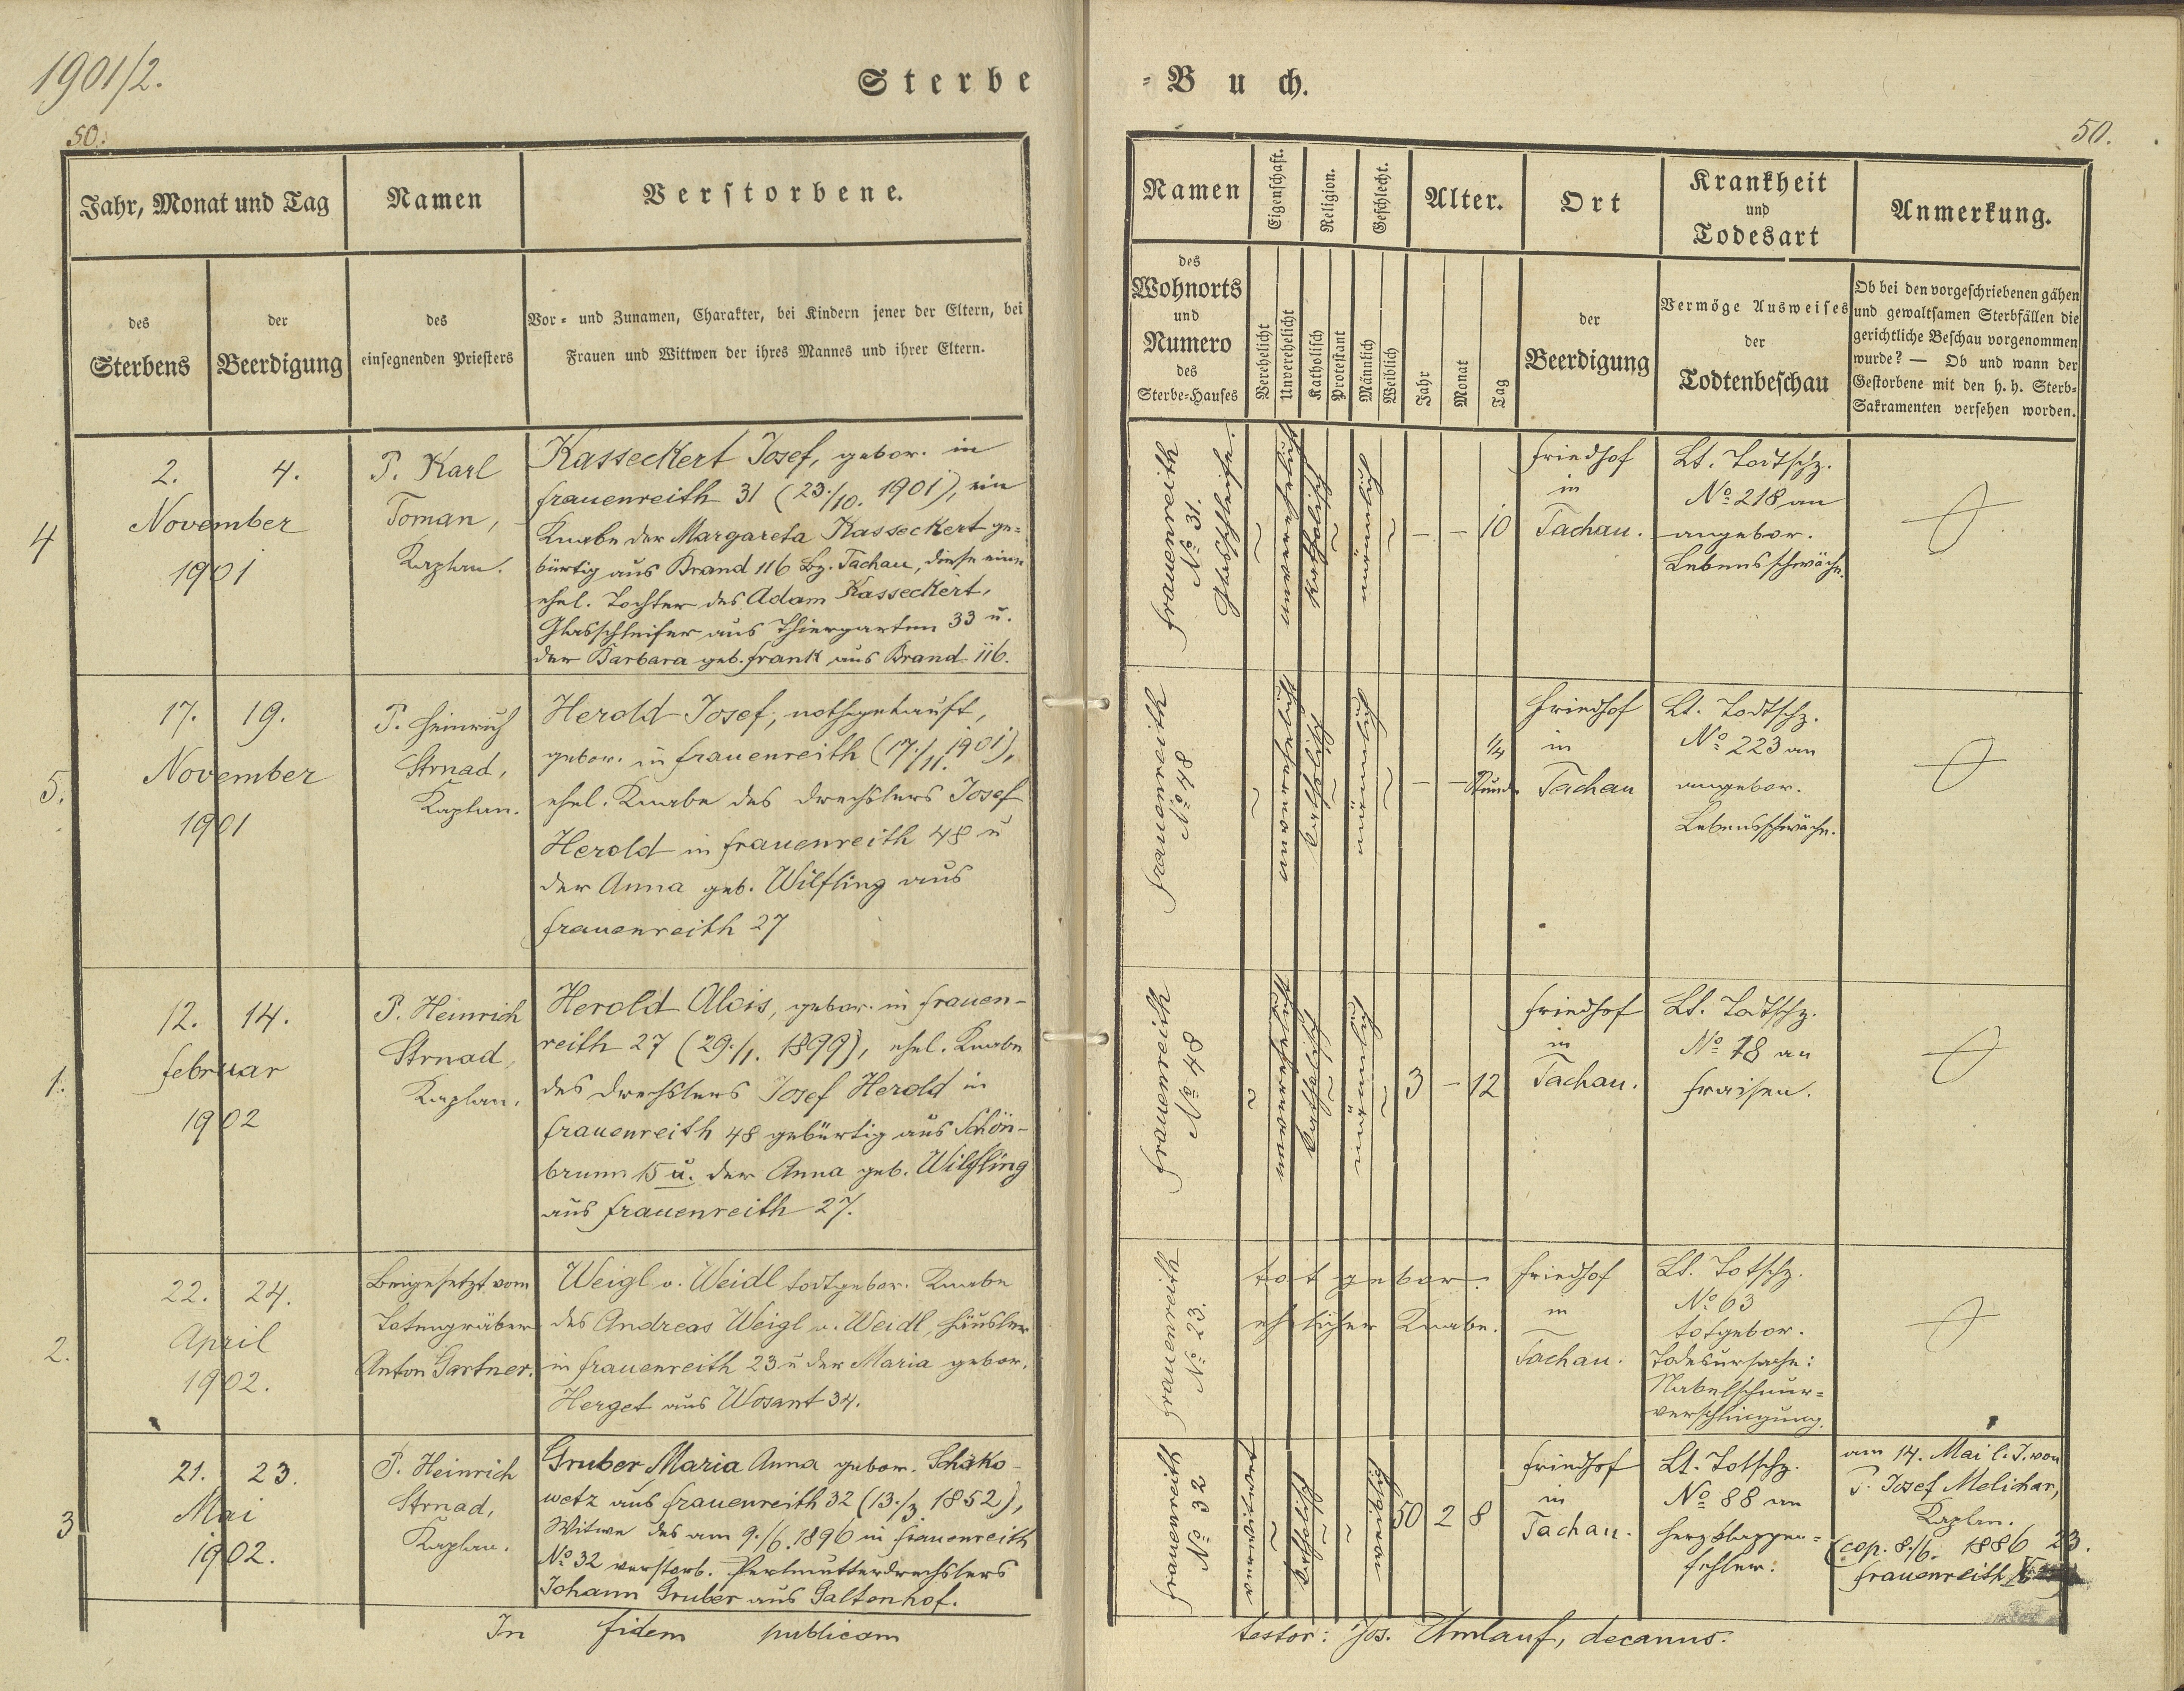 1901/2.
Sterbe
50.
Jahr, Monat und Tag
Namen
Verstorbene.
des
Sterbens
der
Beerdigung
des
einsegnenden Priesters
Vor- und Zunamen, Charakter, bei Kindern jener der Eltern, bei
Frauen und Wittwen der ihres Mannes und ihrer Eltern.
4
2. 4.
November
1901
P. Karl
Toman,
Kaplan.
Kasseckert Josef, gebor. in
Frauenreith 31 (23./10. 1901), ein
Knabe der Margareta Kasseckert ge=
bürtig aus Brand 116 Bz. Tachau, diese eine
ehel. Tochter des Adam Kasseckert,
Glasschleifer aus Thiergarten 33 u.
der Barbara geb. Frank aus Brand 116.
5.
17. 19.
November
1901
P. Heinrich
Strnad,
Kaplan.
Herold Josef, nothgetauft,
gebor. in Frauenreith (17./11. 1901),
ehel. Knabe des Drechslers Josef
Herold in Frauenreith 48 u
der Anna geb. Wilfling aus
Frauenreith 27
1.
12. 14.
Februar
1902
P. Heinrich
Strnad,
Kaplan.
Herold Alois, gebor. in Frauen-
reith 27 (29./1. 1899), ehel. Knabe
des Drechslers Josef Herold in
Frauenreith 48 gebürtig aus Schön-
brunn 15 u. der Anna geb. Wilfling
aus Frauenreith 27.
2.
22. 24.
April
1902.
Beigesetzt vom
Totengräber
Anton Gartner.
Weigl v. Weidl todtgebor. Knabe
des Andreas Weigl v. Weidl, Häusler
in Frauenreith 23 u der Maria gebor.
Herget aus Wosant 34.
3
21. 23.
Mai
1902.
P. Heinrich
Strnad,
Kaplan.
Gruber Maria Anna gebor. Schako-
wetz aus Frauenreith 32 (13./3 1852),
Witwe des am 9./6. 1896 in Frauenreith
No 32 verstorb. Perlmutterdrechslers
Johann Gruber aus Galtenhof.
In fidem publicam
=Buch.
50.
Namen
Eigenschaft.
Religion.
Geschlecht.
Alter.
Ort
Krankheit
und
Todesart
Anmerkung.
des
Wohnorts
und
Numero
des
Sterbe-Hauses
Verehelicht
Unverehelicht
Katholisch
Protestant
Männlich
Weiblich
Jahr
Monat
Tag
der
Beerdigung
Vermöge Ausweises
der
Todtenbeschau
Ob bei den vorgeschriebenen gähen
und gewaltsamen Sterbfällen die
gerichtliche Beschau vorgenommen
wurde? — Ob und wann der
Gestorbene mit den h. h. Sterb-
Sakramenten versehen worden.
Frauenreith
No 31.
Glasschleife.
~
unverehelicht
katholisch
~
männlich
~
- - 10
Friedhof
in
Tachau.
Lt. Todtschz.
No 218 an
angebor.
Lebensschwäche.
Frauenreith
No 48
~
unverehelicht
katholisch
~
männlich
~
- - 1/4
Stunde
Friedhof
in
Tachau
Lt. Todtschz.
No 223 an
angebor.
Lebensschwäche.
Frauenreith
No 48
~
unverehelicht
katholisch
~
männlich
~
3 - 12
Friedhof
in
Tachau.
Lt. Todtschz.
No 18 an
Fraisen.
Frauenreith
No 23.
totgebor.
ehelicher Knabe.
Friedhof
in
Tachau.
Lt. Totschz.
No 63
totgebor.
Todesursache:
Nabelschnur=
verschlingung.
Frauenreith
No 32
verwitwet
~
katholisch
~
~
weiblich
50 2 8
Friedhof
in
Tachau.
Lt. Totschz.
No 88 an
Herzklappen=
fehler.
am 14. Mai l. J. von
P. Josef Melichar,
Kaplan.
(cop. 8./6. 1886 23.
Frauenreith
testor: Jos. Umlauf, decanus.